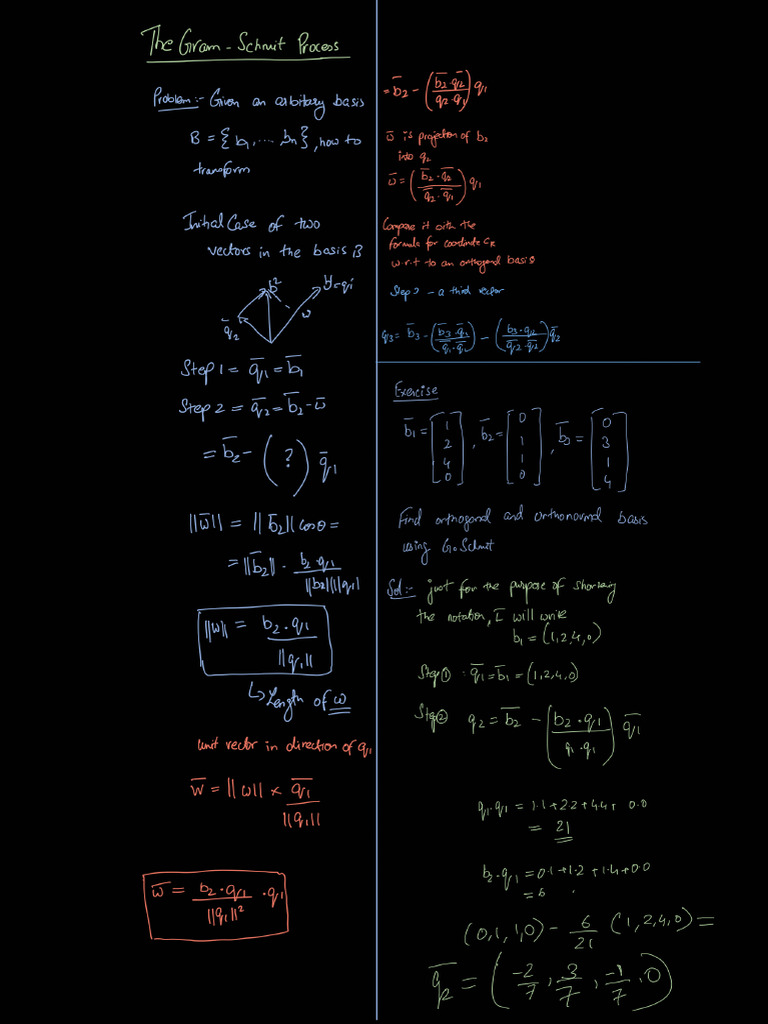 The Gram-Schmit Process
Problem:- Given an arbitary basis
B = {b1, ... bn}, how to
transform
Initial Case of two
vectors in the basis B
b2
b1=q1
q̄2
w
Step 1 = q̄1 = b̄1
Step 2 = q̄2 = b̄2 - w̄
= b̄2 - ( ? ) q̄1
||w̄|| = ||b̄2|| cosθ =
= ||b̄2|| · b2·q1 / ||b2|| ||q1||
||w|| = b2·q1 / ||q1||
↳ Length of w
unit vector in direction of q1
w̄ = ||w|| × q̄1 / ||q1||
w̄ = b2·q1 / ||q1||² · q1
= b̄2 - (b̄2·q̄2 / q̄2·q̄1) q1
w̄ is projection of b2
into q2
w̄ = (b̄2·q̄2 / q̄2·q̄1) q1
Compare it with the
formula for coordinate ck
w.r.t to an orthogonal basis
Step 3 - a third vector
q3 = b̄3 - (b̄3·q̄1 / q̄1·q̄1) - (b3·q2 / q̄2·q̄2) q̄2
Exercise
b̄1 = [1 2 4 0], b̄2 = [0 1 1 0], b̄3 = [0 3 1 4]
Find orthogonal and orthonormal basis
using G.Schmit
Sol:- just for the purpose of shortening
the notation, I will write
b1 = (1,2,4,0)
Step① : q̄1 = b̄1 = (1,2,4,0)
Step② q2 = b̄2 - (b2·q1 / q1·q1) q̄1
q1·q1 = 1.1+2.2+4.4+0.0
= 21
b2·q1 = 0.1+1.2+1.4+0.0
= 6
(0,1,1,0) - 6/21 (1,2,4,0) =
q̄2 = (-2/7, 3/7, -1/7, 0)